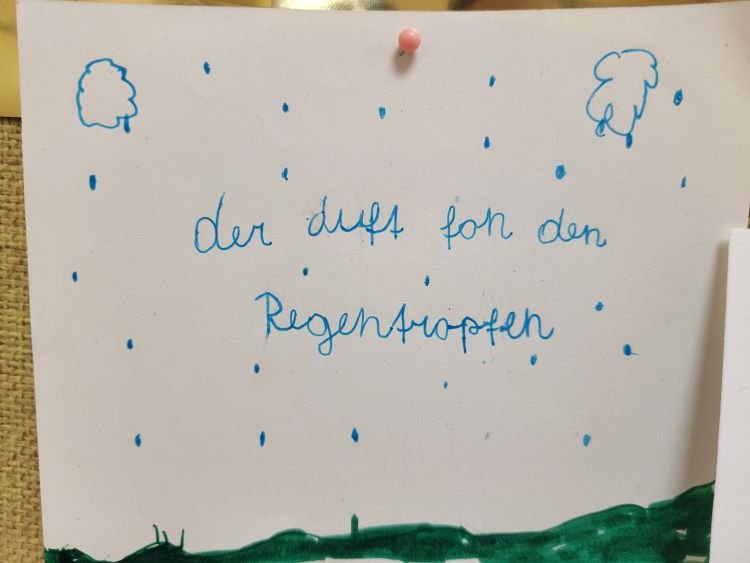 der duft fon den
Regentropfen